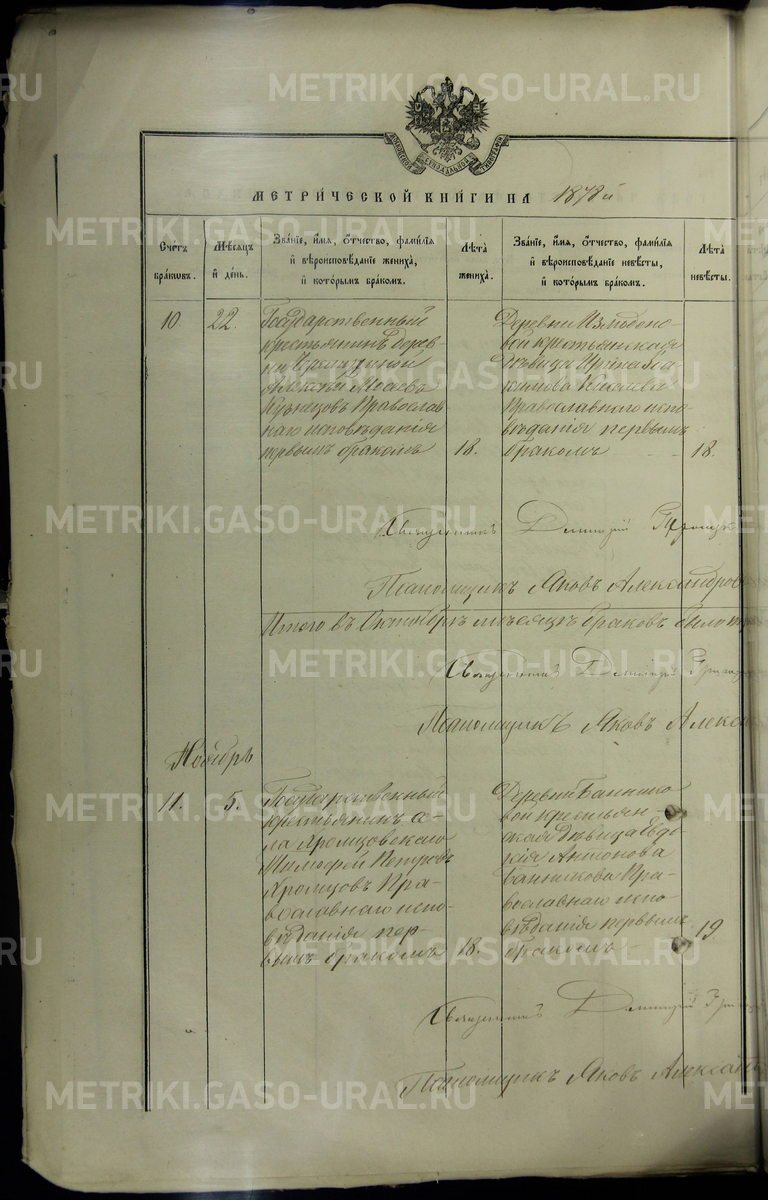 МЕТРИ́ЧЕСКОЙ КНИ́ГИ НА 1878й
Счетъ бра́ковъ.
Мѣсяцъ и҆ де́нь.
Зва́нїе, и҆́мя, ѻ҆́тчество, фами́лїя и҆ вѣроисповѣ́данїе жениха̀, и҆ кото́рымъ бра́комъ.
Лѣ́та жениха̀.
Зва́нїе, и҆́мя, ѻ҆́тчество, фами́лїя и҆ вѣроисповѣ́данїе невѣ́сты, и҆ кото́рымъ бра́комъ.
Лѣ́та невѣ́сты.
10
22.
Государственный
крестьянинъ дерев
ни
Алексѣй Моѵсеевъ
Кузнецовъ Православ
наго исповѣданія
первымъ бракомъ
18.
Деревни
вой крестьянская
дѣвица Ирина
Православнаго испо
вѣданія первымъ
бракомъ
18.
Священникъ Димитрій
Псаломщикъ Яковъ Александров
Итого въ Октябрѣ мѣсяцѣ браковъ было
Священникъ Димитрій
Псаломщикъ Яковъ Алекса
Ноябрь
11.
5.
Государственный
крестьянинъ се-
ла Хромцовскаго
Тимофей Петровъ
Хромцовъ Пра-
вославнаго испо-
вѣданія пер-
вымъ бракомъ
18.
Деревни Баннико
вой крестьян-
ская дѣвица Евдо
кія Антонова
Банникова Пра-
вославнаго испо-
вѣданія первымъ
бракомъ
19
Священникъ Димитрій
Псаломщикъ Яковъ Александ
METRIKI.GASO-URAL.RU